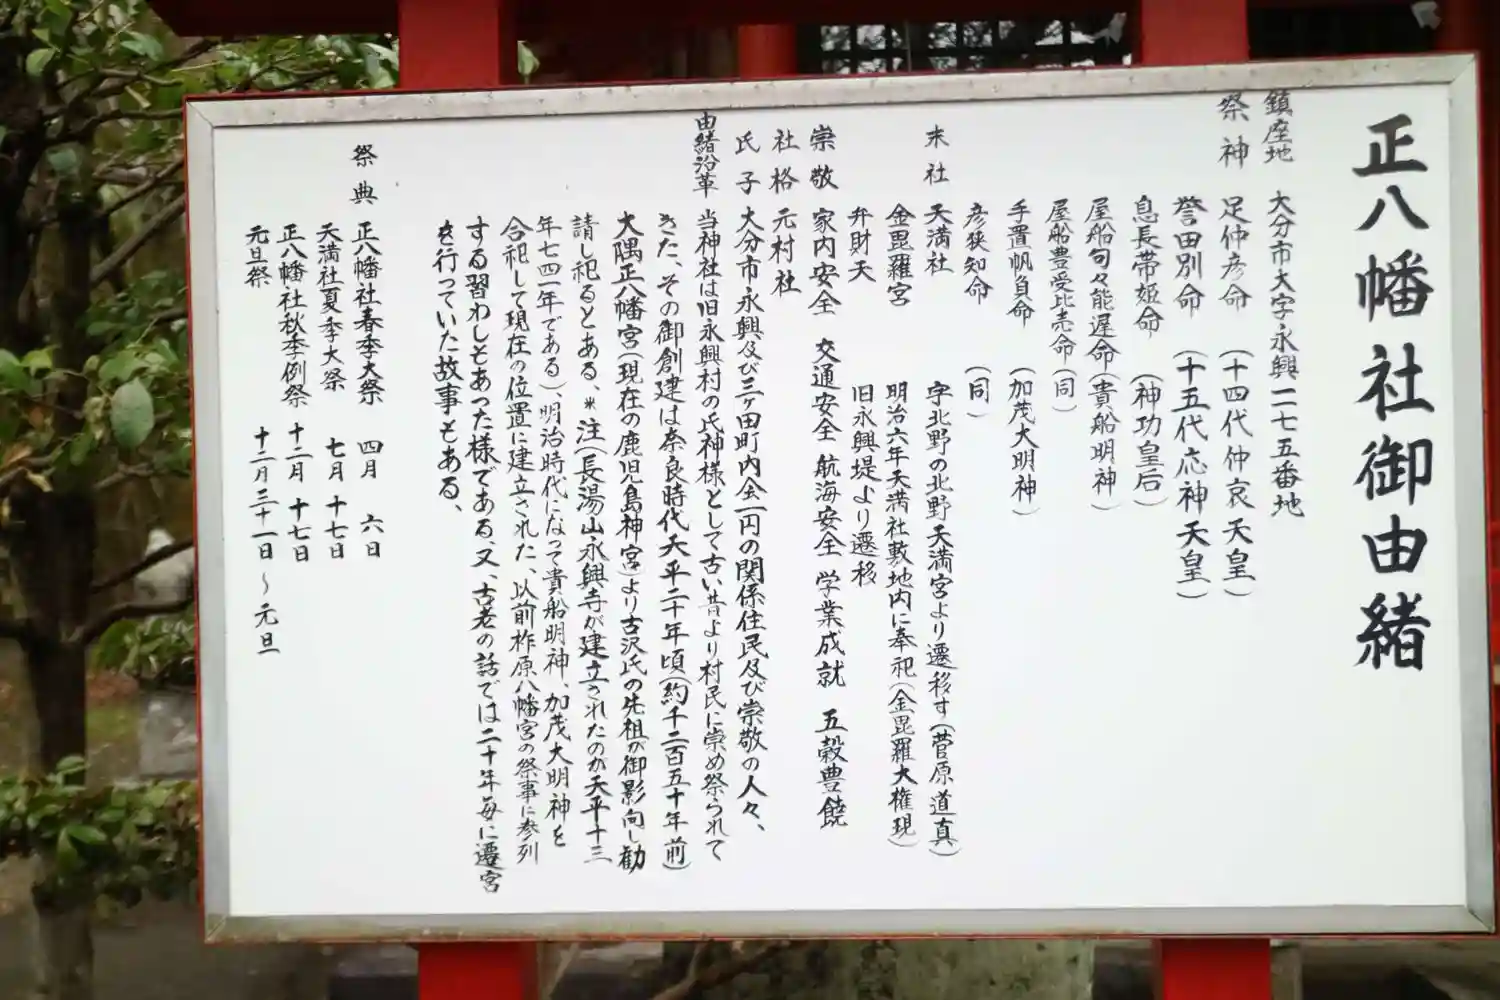 正八幡社御由緒
鎮座地 大分市大字永興一二七五番地
祭神 足仲彦命 (十四代仲哀天皇)
誉田別命 (十五代応神天皇)
息長帯姫命 (神功皇后)
屋船句々能遅命(貴船明神)
屋船豊受比売命(同)
手置帆負命 (加茂大明神)
彦狭知命 (同)
末社 天満社 字北野の北野天満宮より遷移す(菅原道真)
金毘羅宮 明治六年天満社敷地内に奉祀(金毘羅大権現)
弁財天 旧永興堤より遷移
崇敬 家内安全 交通安全 航海安全 学業成就 五穀豊饒
社格 元村社
氏子 大分市永興及び三ヶ田町内会一円の関係住民及び崇敬の人々、
由緒沿革 当神社は旧永興村の氏神様として古い昔より村民に崇め祭られて
きた、その御創建は奈良時代天平二十年頃(約千二百五十年前)
大隅正八幡宮(現在の鹿児島神宮)より古沢氏の先祖が御影向し勧
請し祀るとある、*注(長湯山永興寺が建立されたのが天平十三
年七四一年である)、明治時代になって貴船明神、加茂大明神を
合祀して現在の位置に建立された、以前柞原八幡宮の祭事に参列
する習わしもあった様である、又、古老の話では二十年毎に遷宮
を行っていた故事もある、
祭典 正八幡社春季大祭 四月 六日
天満社夏季大祭 七月 十七日
正八幡社秋季例祭 十二月 十七日
元旦祭 十二月三十一日～元旦